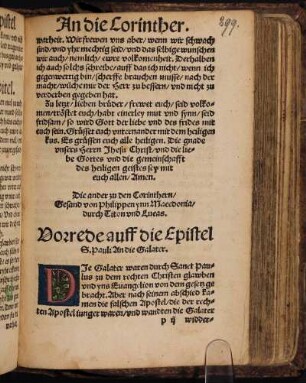 An die Corinther.
299.
warheit. Wir frewen uns aber, wenn wir schwach
seid, und yhr mechtig seid, und das selbige wunschen
wir auch, nemlich, ewre volkomenheit. Derhalben
ich auch solchs schreibe, auff das ich nicht, wenn ich
gegenwertig bin, scherffe brauchen musse, nach der
macht, wilche mir der Herr zu bessern, und nicht zu
verderben gegeben hat.
Zu letzt, lieben brüder, frewet euch, seid volko-
men, tröstet euch, habt einerley mut und synn, seid
fridsam, so wird Gott der liebe und des frides mit
euch sein. Grüsset euch unternander mit dem heiligen
kus. Es grüssen euch alle heiligen. Die gnade
unsers Herrn Jhesu Christ, und die lie-
be Gottes und die gemeinschafft
des heiligen geistes sey mit
euch allen, Amen.
Die ander zu den Corinthern,
Gesand von Philippen ynn Macedonia,
durch Titon und Lucas.
Vorrede auff die Epistel
S. Pauli An die Galater.
DIe Galater waren durch Sanct Pau-
lus zu dem rechten Christen glawben
und yns Euangelion von dem gesetz ge
bracht. Aber nach seinem abschied ka-
men die falschen Apostel, die der rech-
ten Apostel iunger waren, und wandten die Galater
p ij widder-